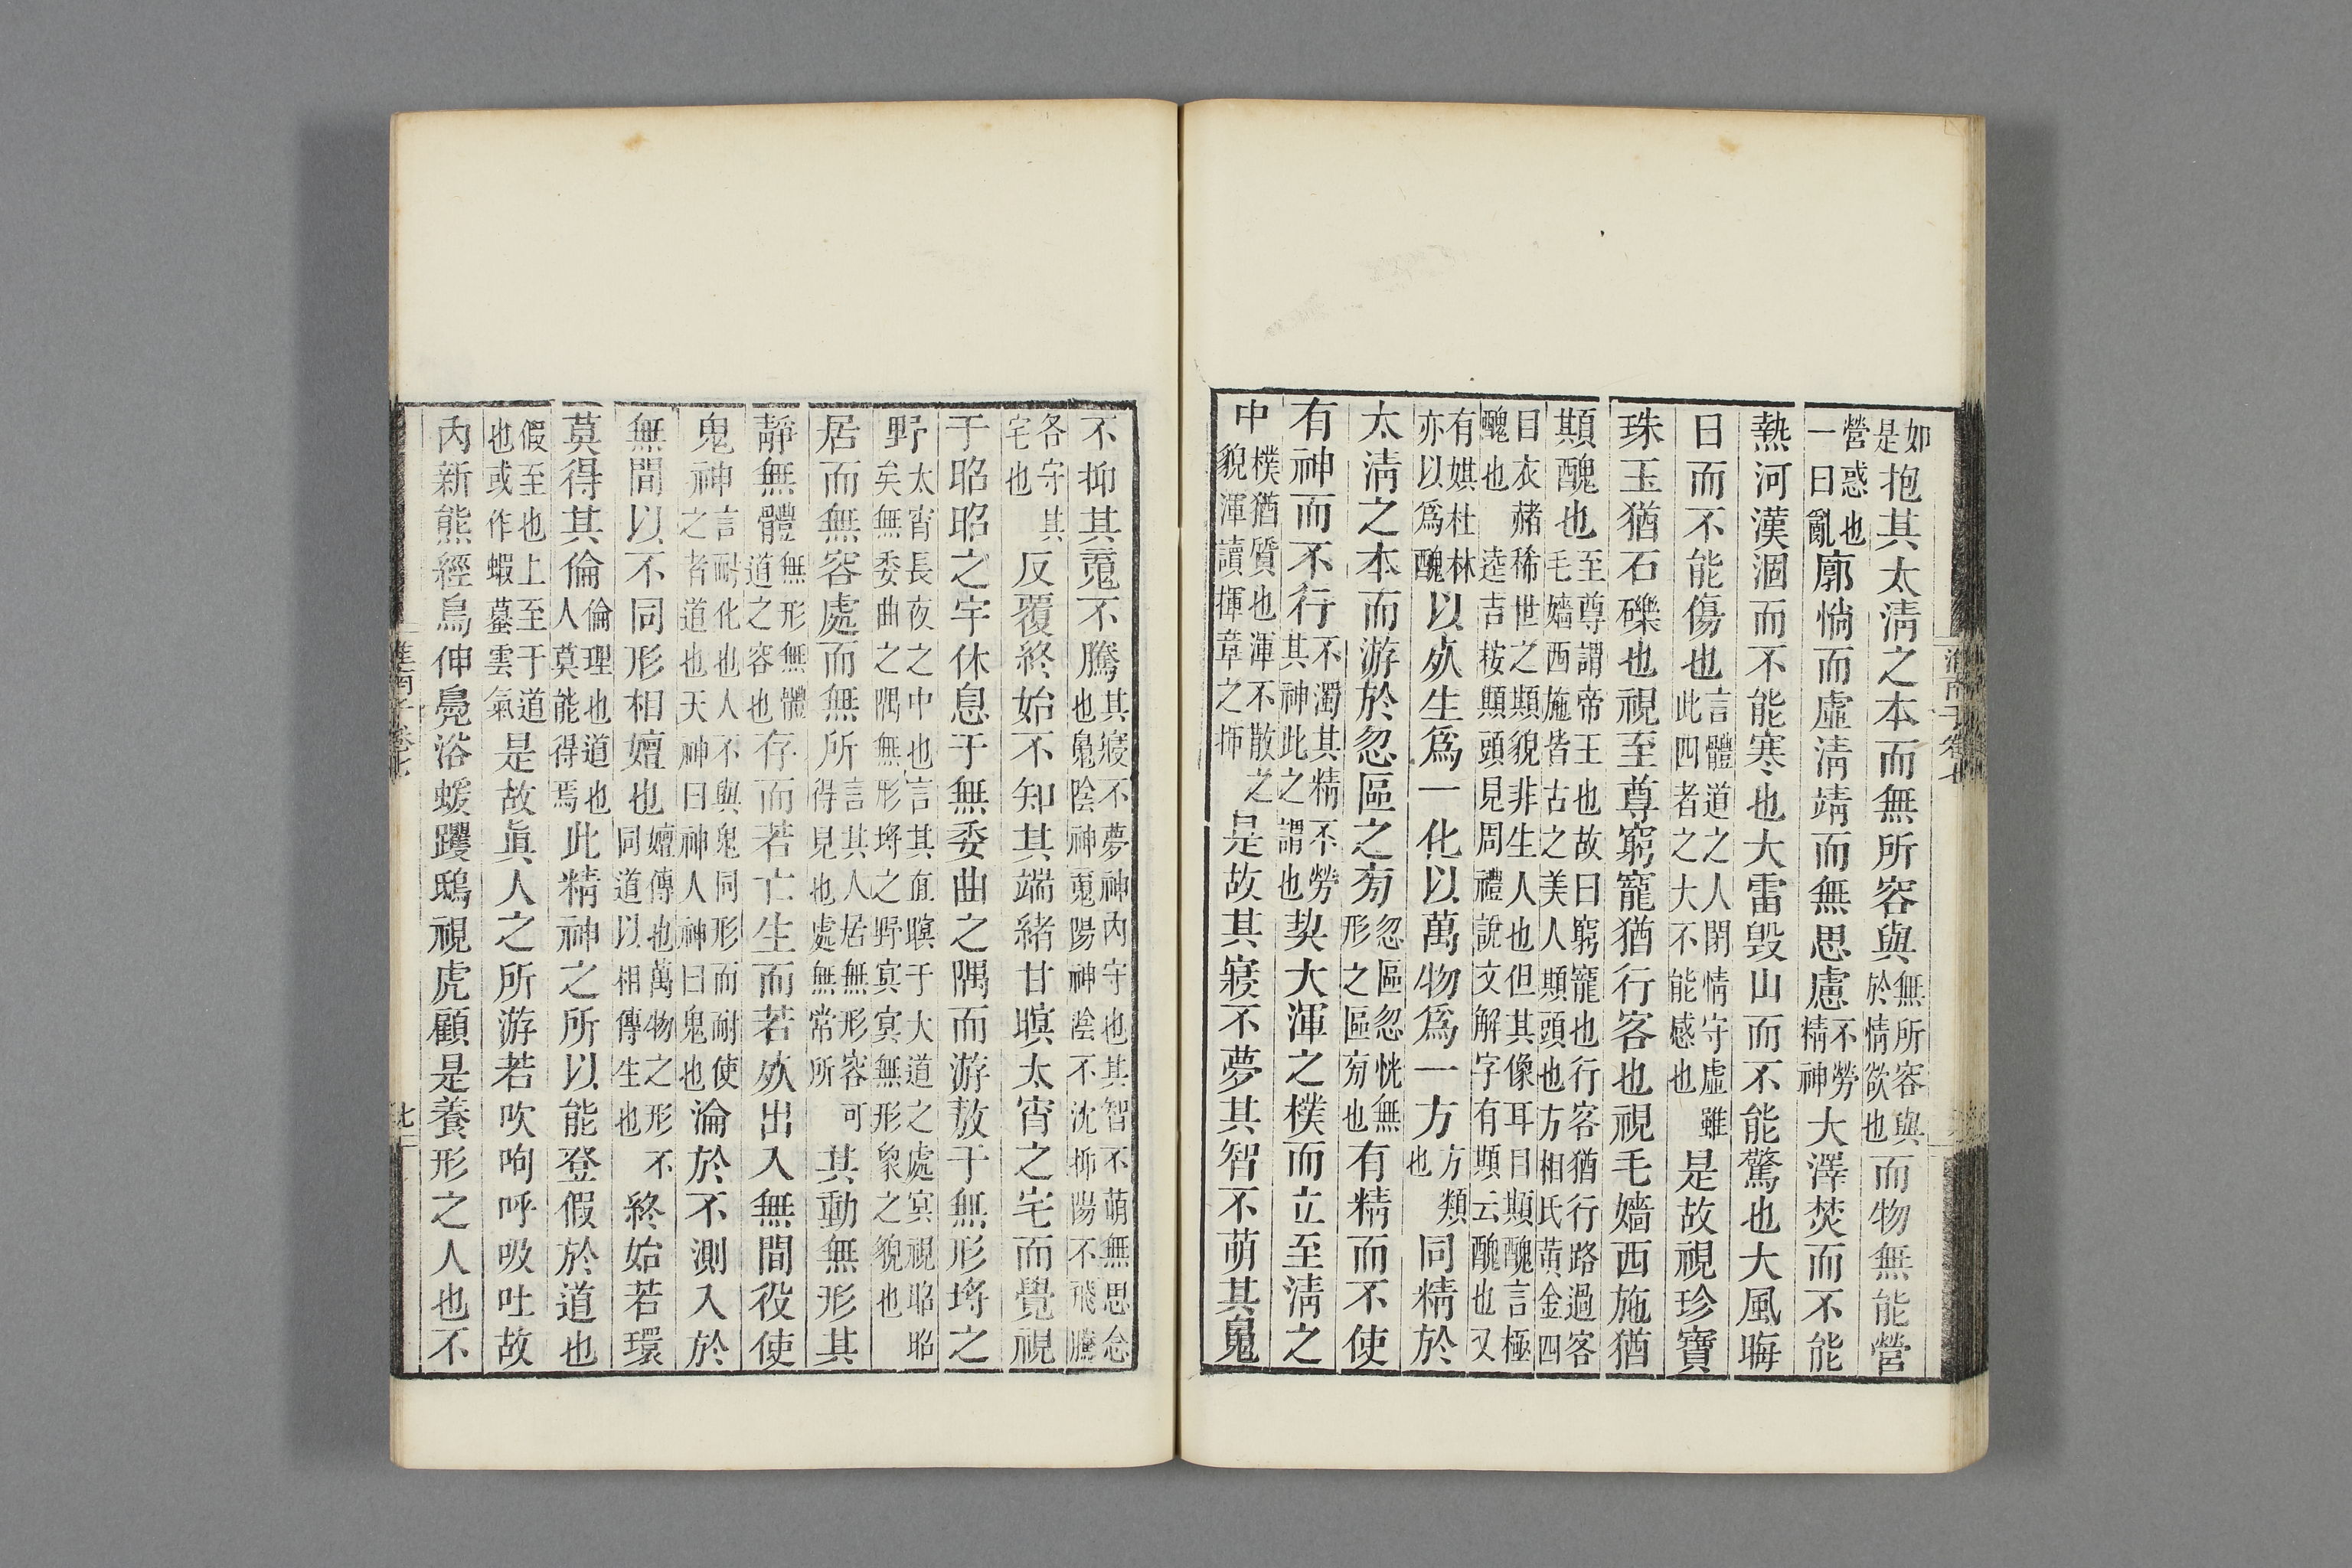 如是抱其太淸之本而無所容與無所容與於情欲也而物無能營
營惑也一曰亂廓惝而虛淸靖而無思慮不勞精神大澤焚而不能
熱河漢涸而不能寒也大雷毀山而不能驚也大風晦
日而不能傷也言體道之人閉情守虛雖此四者之大不能感也是故視珍寶
珠玉猶石礫也視至尊窮寵猶行客也視毛嬙西施猶
䫏醜也至尊謂帝王也故曰窮寵也行客猶行路過客毛嬙西施皆古之美人䫏頭也方相氏黃金四
目衣赭稀世之䫏貌非生人也但其像耳目䫏醜言極醜也逵吉桉䫏頭見周禮說文解字有䫏云醜也又
有娸杜林亦以爲醜以㱙生爲一化以萬物爲一方方類也同精於
太淸之本而游於忽區之㫄忽區忽恍無形之區㫄也有精而不使
有神而不行不濁其精不勞其神此之謂也契大渾之樸而立至淸之
中樸猶質也渾不散之貌渾讀揮章之揮是故其寢不夢其智不萌其魄
不抑其䰟不騰其寢不夢神內守也其智不萌無思念也魄陰神䰟陽神陰不沈抑陽不飛騰
各守其宅也反覆終始不知其端緒甘瞑太宵之宅而覺視
于昭昭之宇休息于無委曲之隅而游敖于無形埒之
野太宵長夜之中也言其直瞑于大道之處冥視昭昭矣無委曲之隅無形埒之野冥冥無形象之貌也
居而無容處而無所言其人居無形容可得見也處無常所其動無形其
靜無體無形無體道之容也存而若亡生而若㱙出入無間役使
鬼神言耐化也人不與鬼同形而耐使之者道也天神曰神人神曰鬼也淪於不測入於
無間以不同形相嬗也嬗傳也萬物之形不同道以相傳生也終始若環
莫得其倫倫理也道也人莫能得焉此精神之所以能登假於道也
假至也上至于道也或作蝦蟇雲氣是故眞人之所游若吹呴呼吸吐故
內新熊經鳥伸鳧浴蝯躩鴟視虎顧是養形之人也不